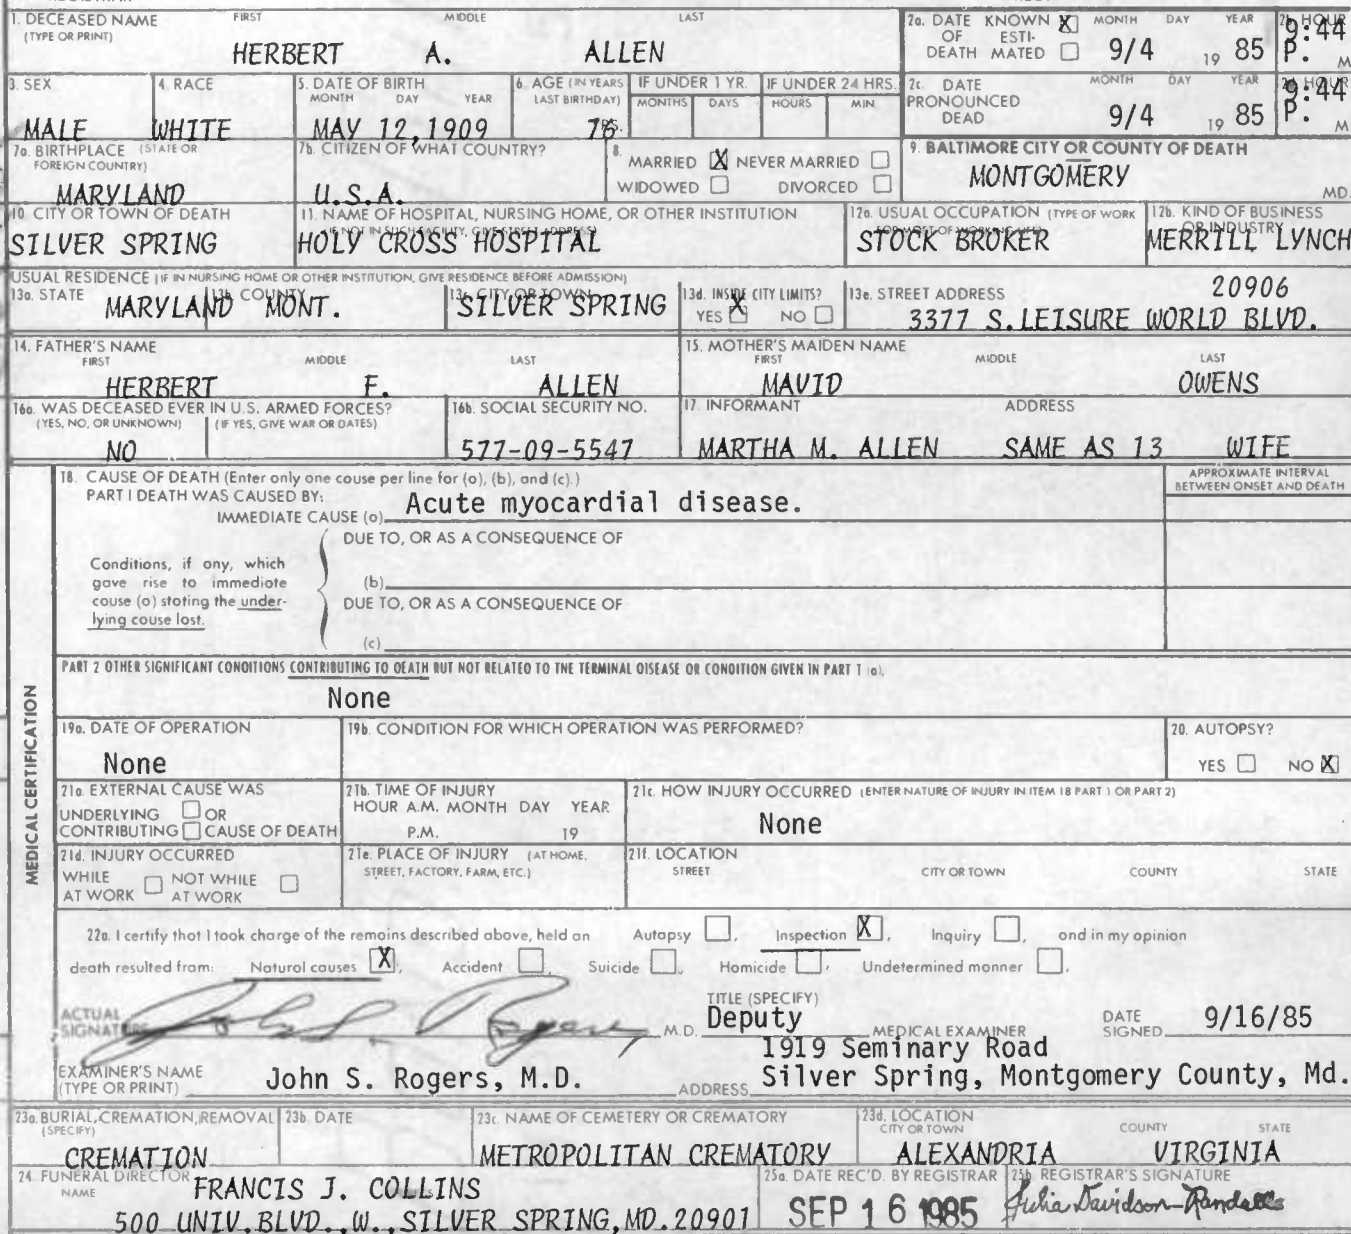 1. DECEASED NAME FIRST MIDDLE LAST
(TYPE OR PRINT)
HERBERT A. ALLEN
2a. DATE KNOWN X MONTH DAY YEAR 2b. HOUR
OF ESTI-
DEATH MATED 9/4 19 85 9:44 P. M
3. SEX 4. RACE 5. DATE OF BIRTH 6. AGE (IN YEARS IF UNDER 1 YR. IF UNDER 24 HRS.
MONTH DAY YEAR LAST BIRTHDAY) MONTHS DAYS HOURS MIN
MALE WHITE MAY 12,1909 76 YRS.
2c. DATE MONTH DAY YEAR 2d. HOUR
PRONOUNCED
DEAD 9/4 19 85 9:44 P. M
7a. BIRTHPLACE (STATE OR
FOREIGN COUNTRY)
MARYLAND
7b. CITIZEN OF WHAT COUNTRY?
U.S.A.
8. MARRIED X NEVER MARRIED
WIDOWED DIVORCED
9. BALTIMORE CITY OR COUNTY OF DEATH
MONTGOMERY MD.
10. CITY OR TOWN OF DEATH
SILVER SPRING
11. NAME OF HOSPITAL, NURSING HOME, OR OTHER INSTITUTION
(IF NOT IN SUCH FACILITY, GIVE STREET ADDRESS)
HOLY CROSS HOSPITAL
12a. USUAL OCCUPATION (TYPE OF WORK
FOR MOST OF WORKING LIFE)
STOCK BROKER
12b. KIND OF BUSINESS
OR INDUSTRY
MERRILL LYNCH
USUAL RESIDENCE (IF IN NURSING HOME OR OTHER INSTITUTION, GIVE RESIDENCE BEFORE ADMISSION)
13a. STATE 13b. COUNTY 13c. CITY OR TOWN 13d. INSIDE CITY LIMITS? 13e. STREET ADDRESS 20906
MARYLAND MONT. SILVER SPRING YES X NO 3377 S.LEISURE WORLD BLVD.
14. FATHER'S NAME
FIRST MIDDLE LAST
HERBERT F. ALLEN
15. MOTHER'S MAIDEN NAME
FIRST MIDDLE LAST
MAVID OWENS
16a. WAS DECEASED EVER IN U.S. ARMED FORCES?
(YES, NO, OR UNKNOWN) (IF YES, GIVE WAR OR DATES)
NO
16b. SOCIAL SECURITY NO.
577-09-5547
17. INFORMANT ADDRESS
MARTHA M. ALLEN SAME AS 13 WIFE
MEDICAL CERTIFICATION
18. CAUSE OF DEATH (Enter only one cause per line for (a), (b), and (c).)
PART I DEATH WAS CAUSED BY:
IMMEDIATE CAUSE (a) Acute myocardial disease.
APPROXIMATE INTERVAL
BETWEEN ONSET AND DEATH
DUE TO, OR AS A CONSEQUENCE OF
Conditions, if any, which
gave rise to immediate
cause (a) stating the under-
lying cause last.
(b)
DUE TO, OR AS A CONSEQUENCE OF
(c)
PART 2 OTHER SIGNIFICANT CONDITIONS CONTRIBUTING TO DEATH BUT NOT RELATED TO THE TERMINAL DISEASE OR CONDITION GIVEN IN PART 1 (a).
None
19a. DATE OF OPERATION
None
19b. CONDITION FOR WHICH OPERATION WAS PERFORMED?
20. AUTOPSY?
YES NO X
21a. EXTERNAL CAUSE WAS
UNDERLYING OR
CONTRIBUTING CAUSE OF DEATH
21b. TIME OF INJURY
HOUR A.M. MONTH DAY YEAR
P.M. 19
21c. HOW INJURY OCCURRED (ENTER NATURE OF INJURY IN ITEM 18 PART 1 OR PART 2)
None
21d. INJURY OCCURRED
WHILE NOT WHILE
AT WORK AT WORK
21e. PLACE OF INJURY (AT HOME,
STREET, FACTORY, FARM, ETC.)
21f. LOCATION
STREET CITY OR TOWN COUNTY STATE
22a. I certify that I took charge of the remains described above, held an Autopsy , Inspection X , Inquiry , and in my opinion
death resulted from: Natural causes X , Accident , Suicide , Homicide , Undetermined manner ,
ACTUAL
SIGNATURE John S. Rogers M.D.
TITLE (SPECIFY)
Deputy MEDICAL EXAMINER
DATE
SIGNED 9/16/85
EXAMINER'S NAME
(TYPE OR PRINT) John S. Rogers, M.D.
1919 Seminary Road
ADDRESS Silver Spring, Montgomery County, Md.
23a. BURIAL, CREMATION, REMOVAL
(SPECIFY)
CREMATION
23b. DATE
23c. NAME OF CEMETERY OR CREMATORY
METROPOLITAN CREMATORY
23d. LOCATION
CITY OR TOWN COUNTY STATE
ALEXANDRIA VIRGINIA
24. FUNERAL DIRECTOR
NAME FRANCIS J. COLLINS
500 UNIV.BLVD.,W.,SILVER SPRING,MD.20901
25a. DATE REC'D. BY REGISTRAR
SEP 16 1985
25b. REGISTRAR'S SIGNATURE
Julia Davidson-Randall